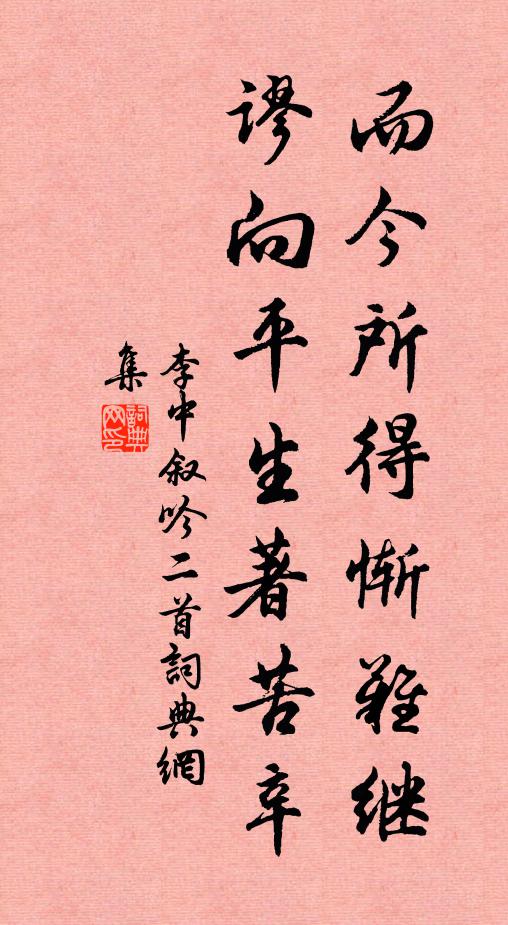 而今所得惭難继
謬向平生著苦辛
李中叙吟二首詞典網
集
詞典
网印